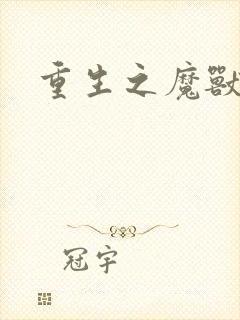 重生之魔獸
冠宇